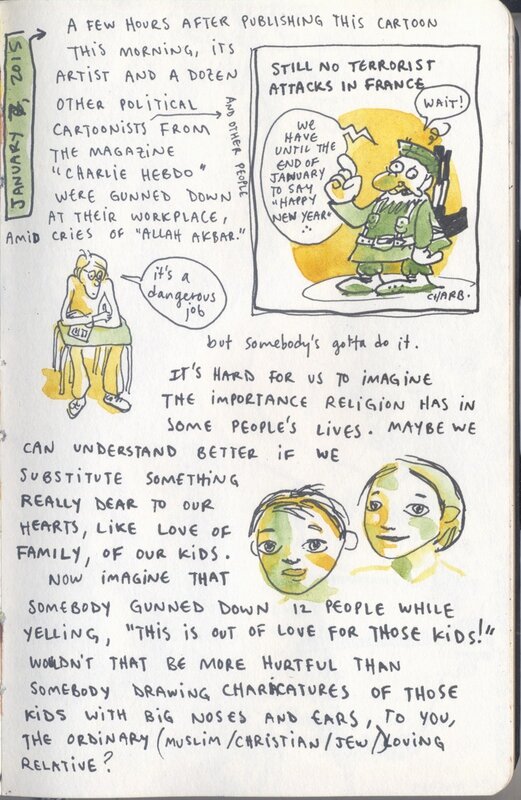 JANUARY 7, 2015
A FEW HOURS AFTER PUBLISHING THIS CARTOON
THIS MORNING, ITS
ARTIST AND A DOZEN
OTHER POLITICAL
CARTOONISTS FROM
AND OTHER PEOPLE
THE MAGAZINE
"CHARLIE HEBDO"
WERE GUNNED DOWN
AT THEIR WORKPLACE,
AMID CRIES OF "ALLAH AKBAR."
STILL NO TERRORIST
ATTACKS IN FRANCE
WAIT!
WE
HAVE
UNTIL THE
END OF
JANUARY
TO SAY
"HAPPY
NEW YEAR"
CHARB.
it's a
dangerous
job
but somebody's gotta do it.
IT'S HARD FOR US TO IMAGINE
THE IMPORTANCE RELIGION HAS IN
SOME PEOPLE'S LIVES. MAYBE WE
CAN UNDERSTAND BETTER IF WE
SUBSTITUTE SOMETHING
REALLY DEAR TO OUR
HEARTS, LIKE LOVE OF
FAMILY, OF OUR KIDS.
NOW IMAGINE THAT
SOMEBODY GUNNED DOWN 12 PEOPLE WHILE
YELLING, "THIS IS OUT OF LOVE FOR THOSE KIDS!"
WOULDN'T THAT BE MORE HURTFUL THAN
SOMEBODY DRAWING CHARICATURES OF THOSE
KIDS WITH BIG NOSES AND EARS, TO YOU,
THE ORDINARY (MUSLIM/CHRISTIAN/JEW/)LOVING
RELATIVE?